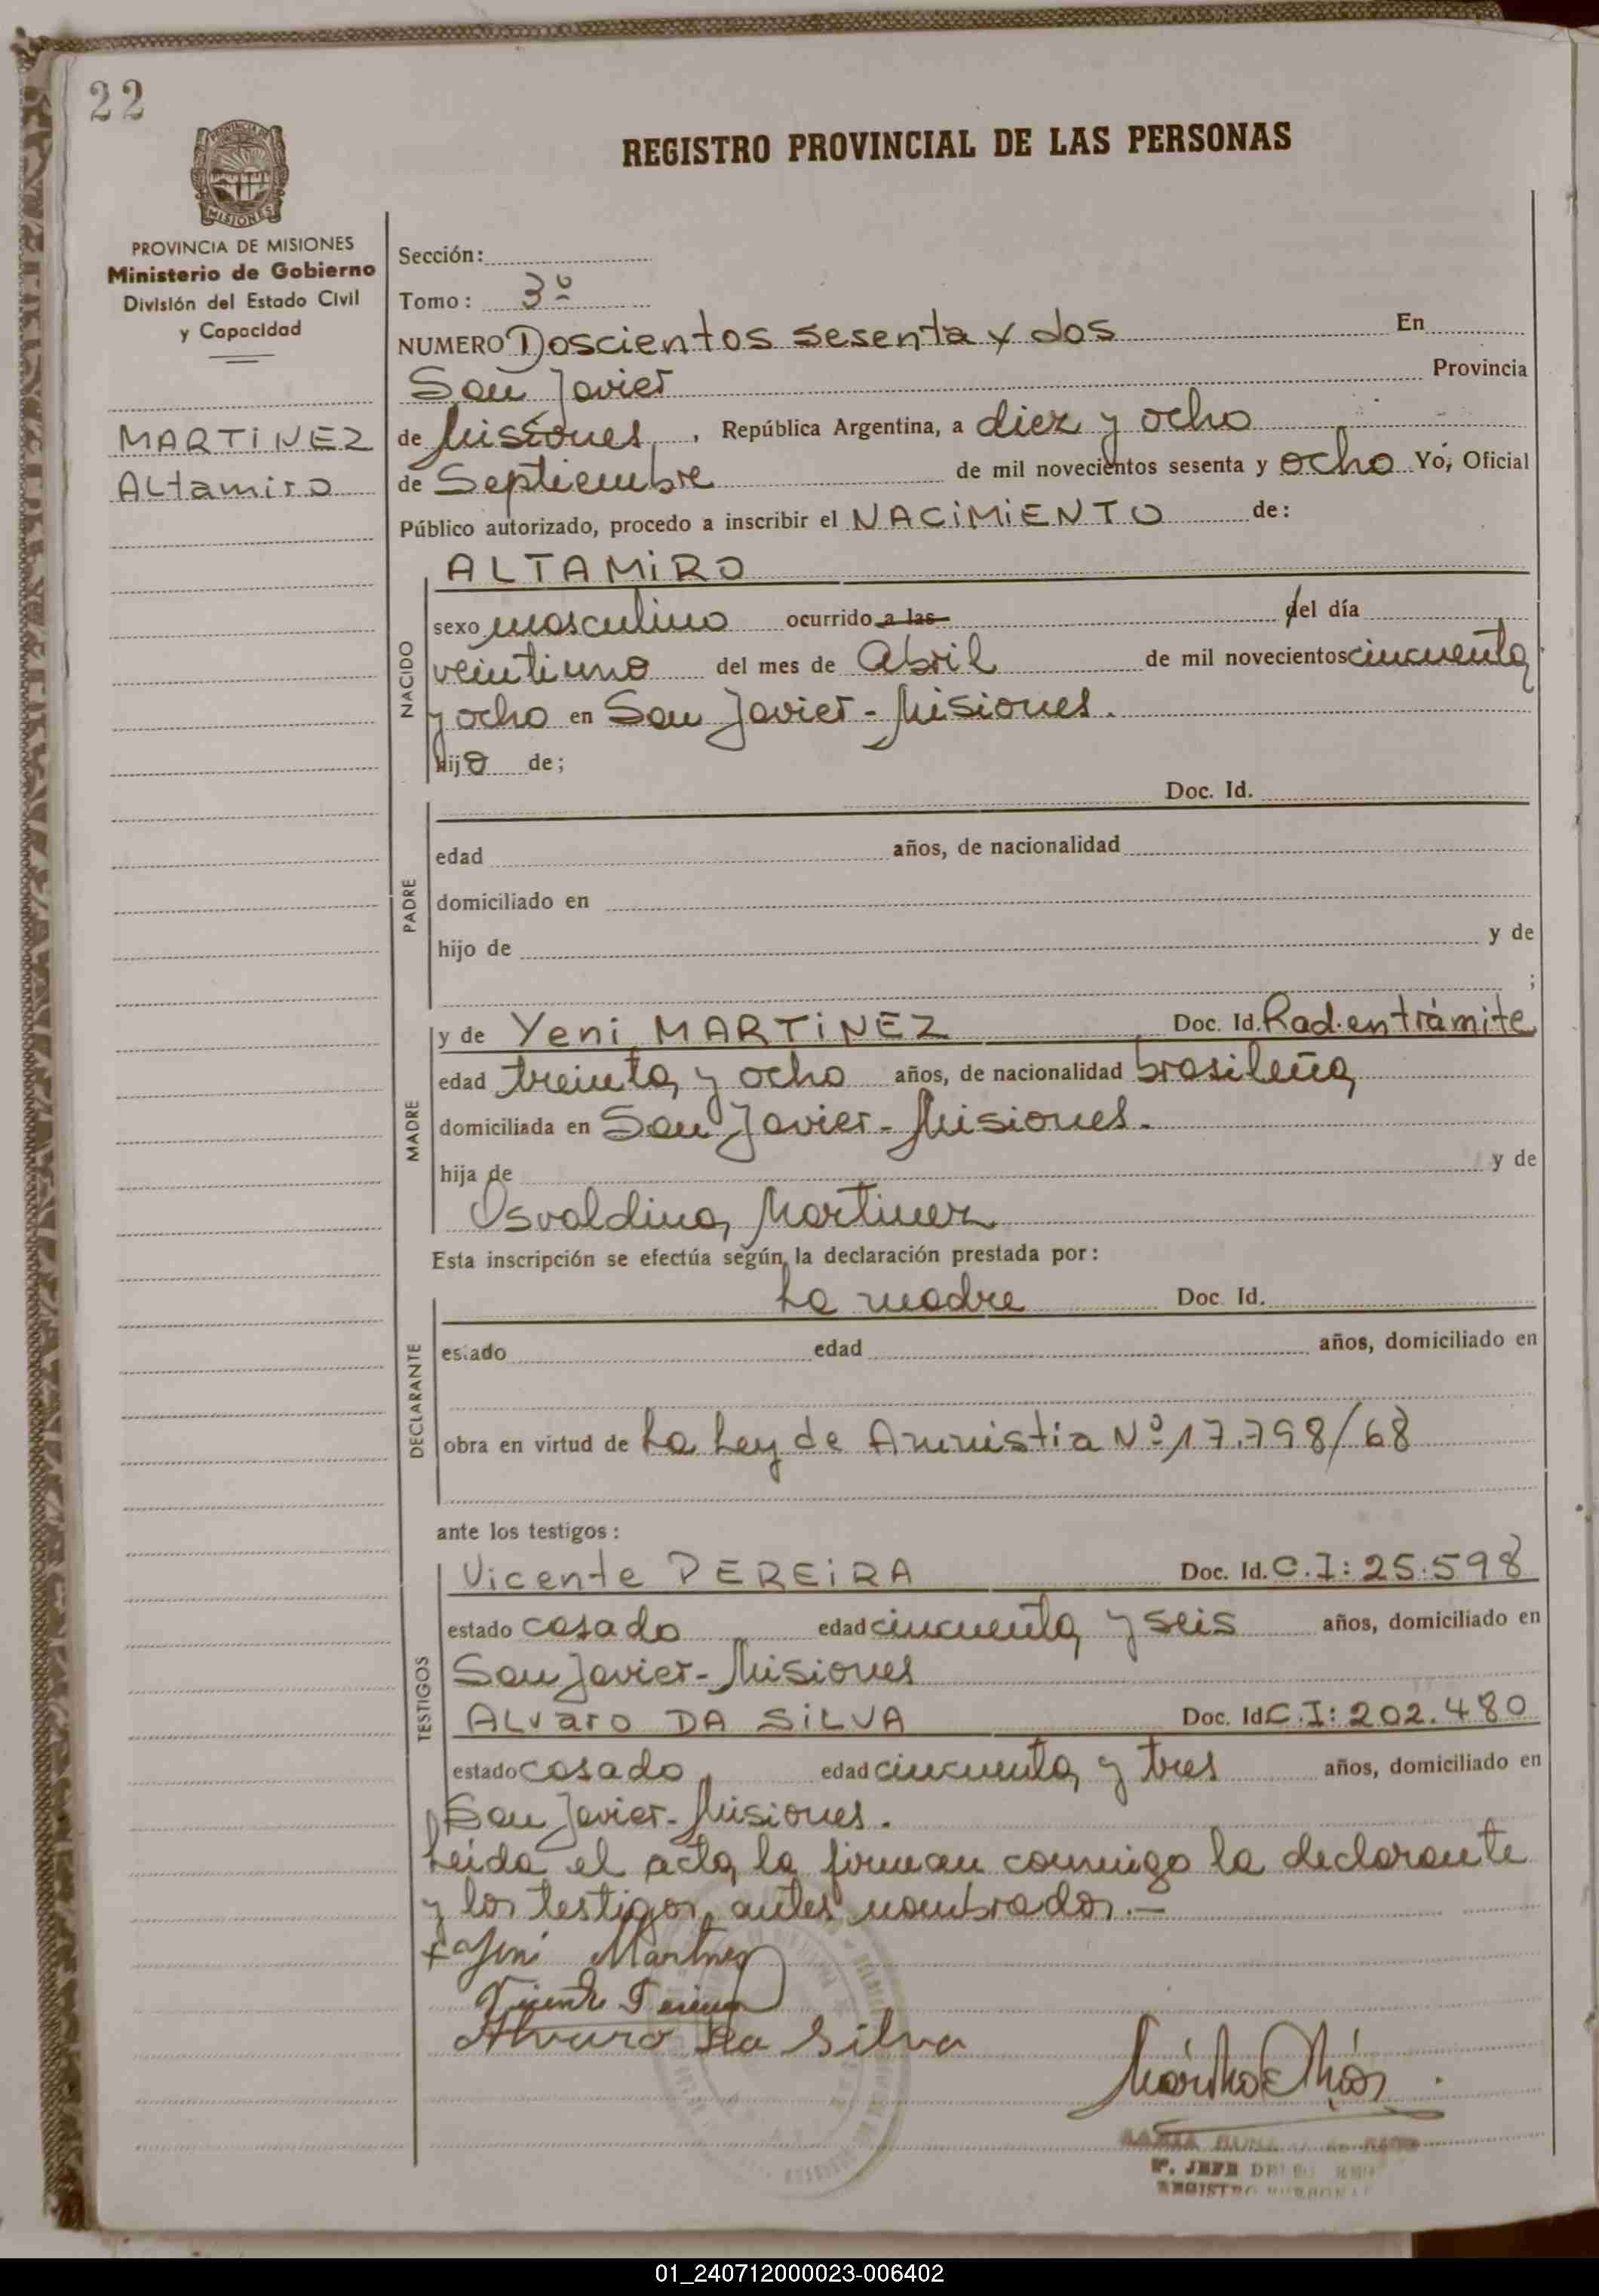 22
PROVINCIA DE MISIONES
MISIONES
PROVINCIA DE MISIONES
Ministerio de Gobierno
División del Estado Civil
y Capacidad
MARTINEZ
Altamiro
REGISTRO PROVINCIAL DE LAS PERSONAS
Sección:
Tomo: 3º
NUMERO Doscientos sesenta y dos En
San Javier Provincia
de Misiones, República Argentina, a diez y ocho
de Septiembre de mil novecientos sesenta y ocho Yo, Oficial
Público autorizado, procedo a inscribir el NACIMIENTO de:
NACIDO
ALTAMIRO
sexo masculino ocurrido a las del día
veintiuno del mes de Abril de mil novecientos cincuenta
y ocho en San Javier - Misiones.
hijo de;
PADRE
Doc. Id.
edad años, de nacionalidad
domiciliado en
hijo de y de
;
MADRE
y de Yeni MARTINEZ Doc. Id. Rad. en trámite
edad treinta y ocho años, de nacionalidad brasileña
domiciliada en San Javier - Misiones.
hija de y de
Osvaldina Martinez
Esta inscripción se efectúa según la declaración prestada por:
DECLARANTE
La madre Doc. Id.
estado edad años, domiciliado en
obra en virtud de La Ley de Amnistia Nº 17.798/68
ante los testigos:
TESTIGOS
Vicente PEREIRA Doc. Id. C.I: 25.598
estado casado edad cincuenta y seis años, domiciliado en
San Javier - Misiones
ALvaro DA SILVA Doc. Id C.I: 202.480
estado casado edad cincuenta y tres años, domiciliado en
San Javier - Misiones.
Leída el acta, la firman conmigo la declarante
y los testigos antes nombrados.-
x Yeni Martinez
Vicente Pereira
Alvaro Da Silva
REGISTRO
01_240712000023-006402